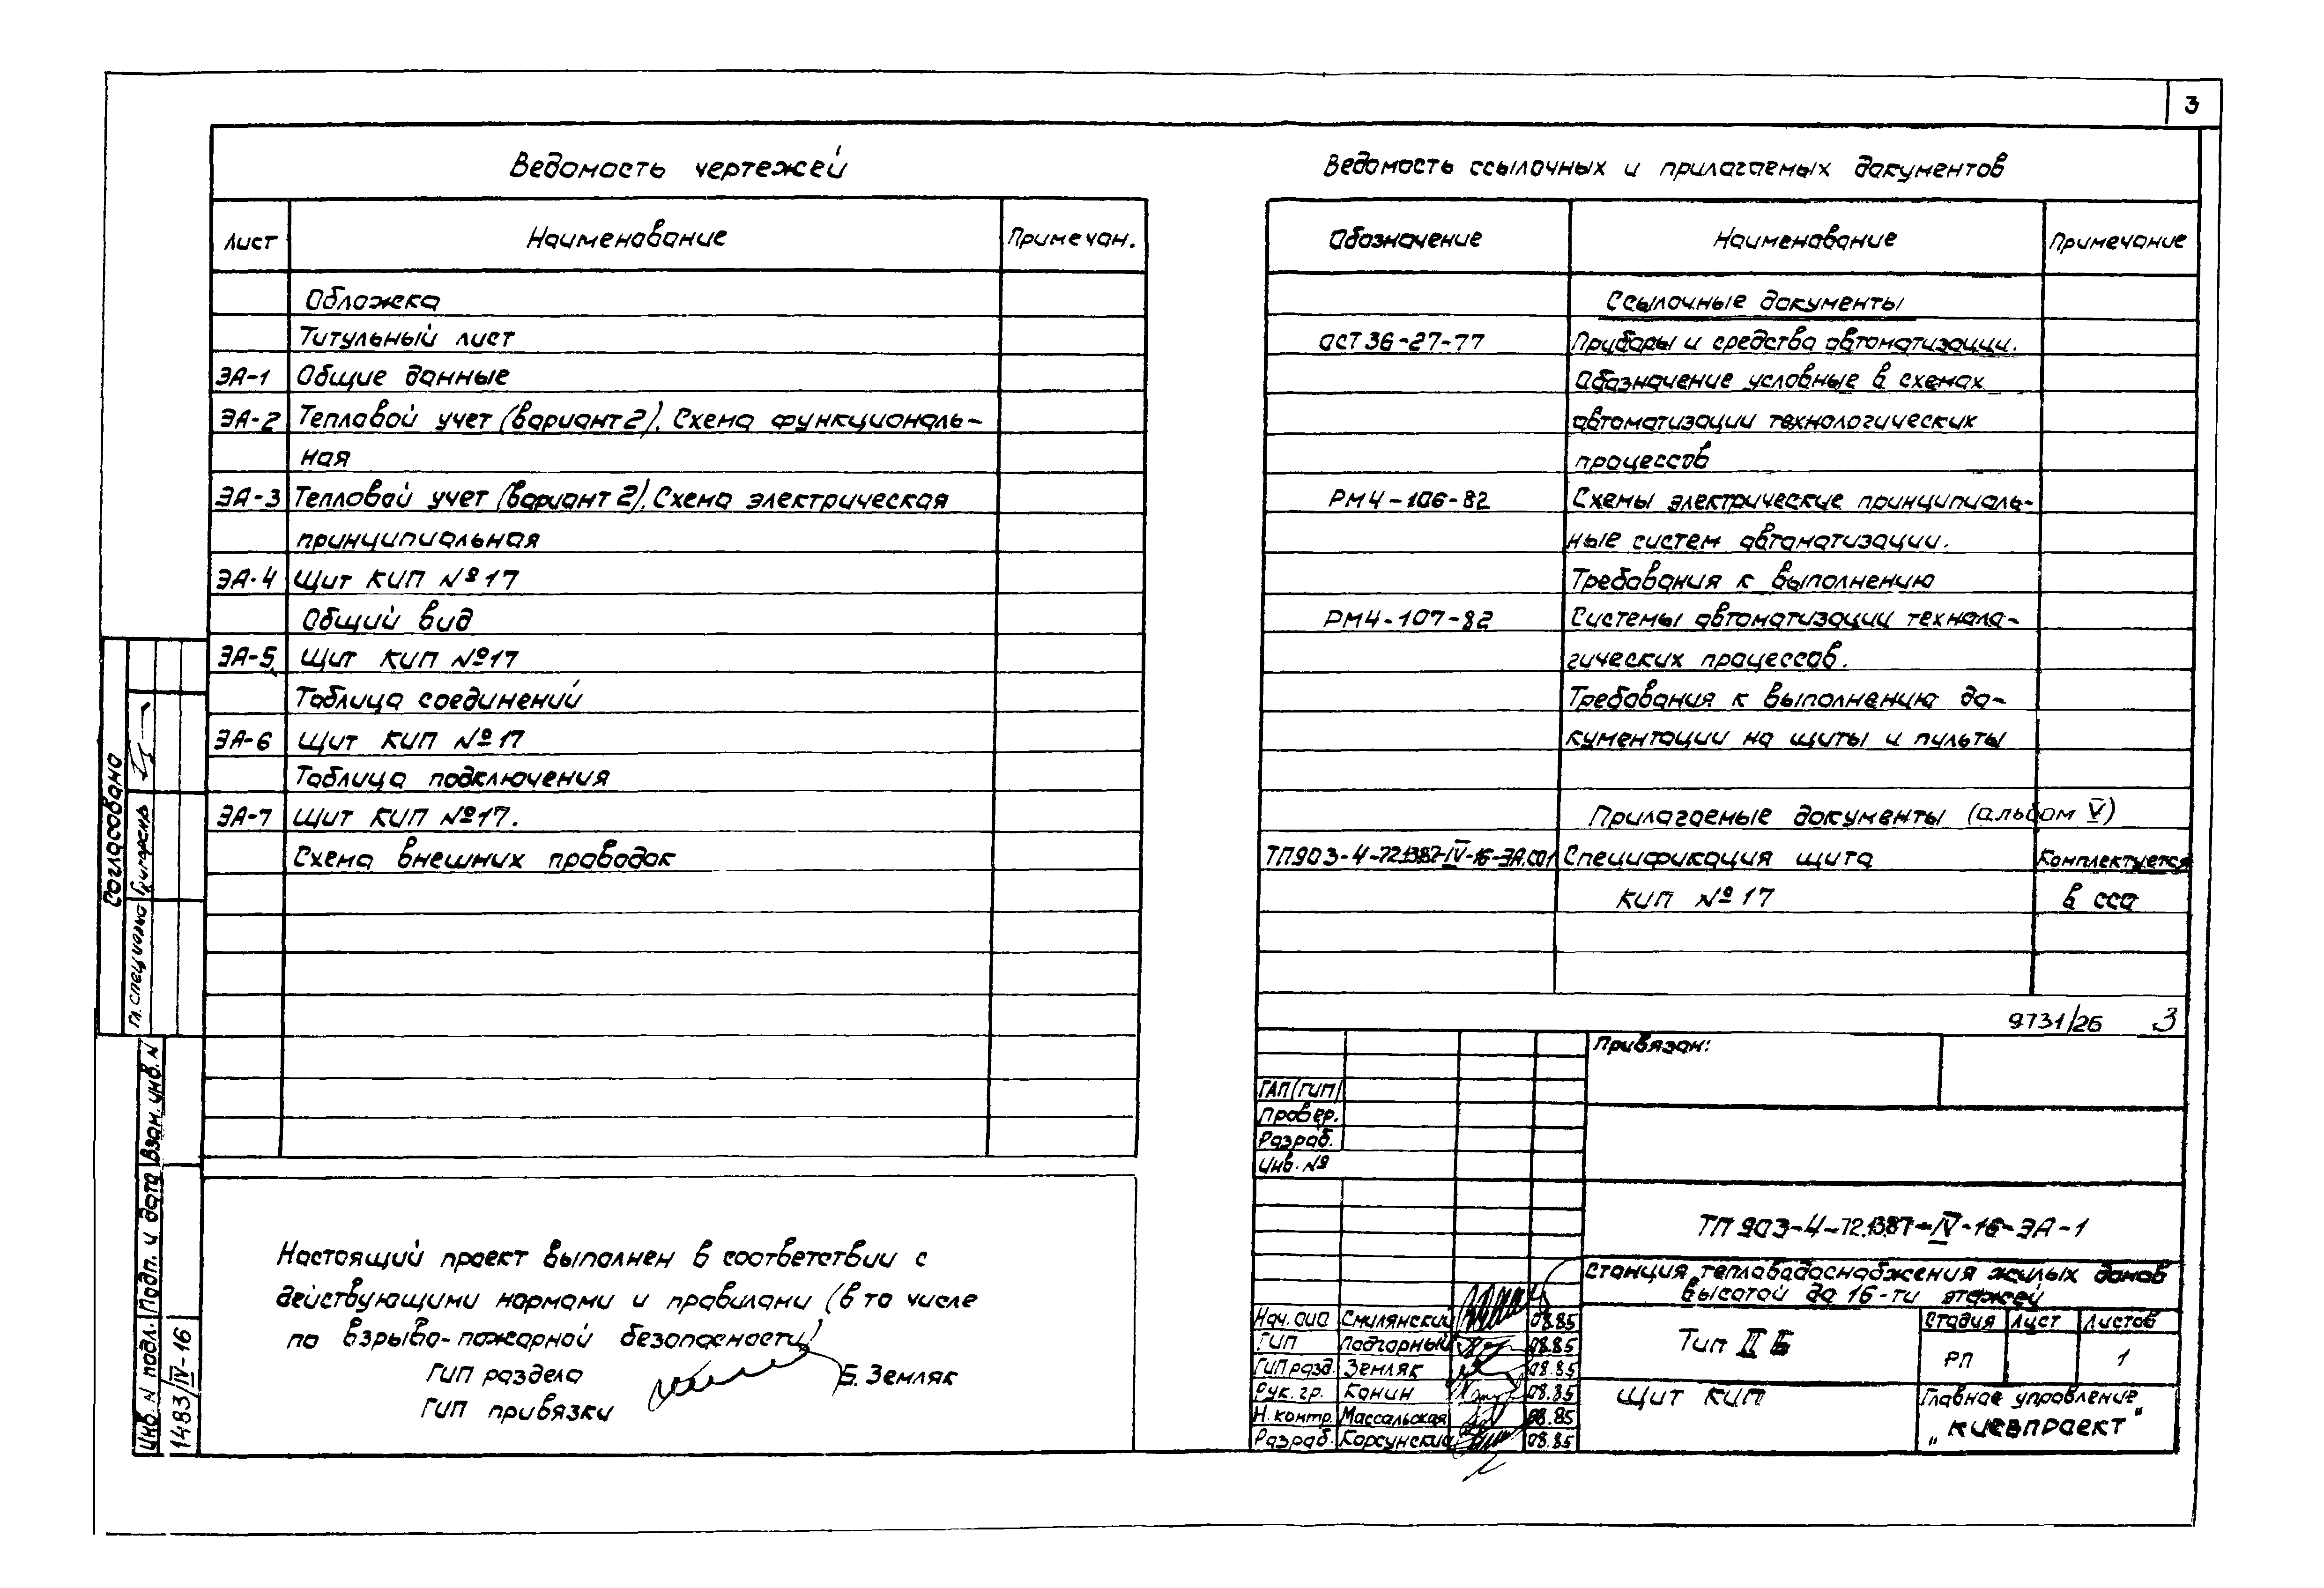 3
Ведомость чертежей
Лист Наименование Примечан.
Обложка
Титульный лист
ЭА-1 Общие данные
ЭА-2 Тепловой учет (вариант 2). Схема функциональ-
ная
ЭА-3 Тепловой учет (вариант 2). Схема электрическая
принципиальная
ЭА-4 Щит КИП №17
Общий вид
ЭА-5 Щит КИП №17
Таблица соединений
ЭА-6 Щит КИП №17
Таблица подключения
ЭА-7 Щит КИП №17.
Схема внешних проводок
Ведомость ссылочных и прилагаемых документов
Обозначение Наименование Примечание
Ссылочные документы
ОСТ 36-27-77 Приборы и средства автоматизации.
Обозначение условные в схемах
автоматизации технологических
процессов
РМ4-106-82 Схемы электрические принципиаль-
ные систем автоматизации.
Требования к выполнению
РМ4-107-82 Системы автоматизации техноло-
гических процессов.
Требования к выполнению до-
кументации на щиты и пульты
Прилагаемые документы (альбом V)
ТП903-4-72.13.87-IV-16-ЭА.СО1 Спецификация щита Комплектуется
КИП №17 в ссо
9731/26 3
Настоящий проект выполнен в соответствии с
действующими нормами и правилами (в то числе
по взрыво-пожарной безопасности)
ГИП раздела Б. Земляк
ГИП привязки
Согласовано
Гл. специал Григорснр
Инв. N подл. Подп. и дата Взам. инв. N
1483/IV-16
Привязан:
ГАП (ГИП)
Провер.
Разраб.
Инв. №
ТП 903-4-72.13.87-IV-16-ЭА-1
Станция тепловодоснабжения жилых домов
высотой до 16-ти этажей
Нач. ОИО Смилянский 08.85
ГИП Подгорный 08.85
ГИП разд. Земляк 08.85
Рук. гр. Канин 08.85
Н. контр. Массальская 08.85
Разраб. Корсунский 08.85
Тип II Б
Стадия Лист Листов
РП 1
Щит КИП
Главное управление
„Киевпроект"